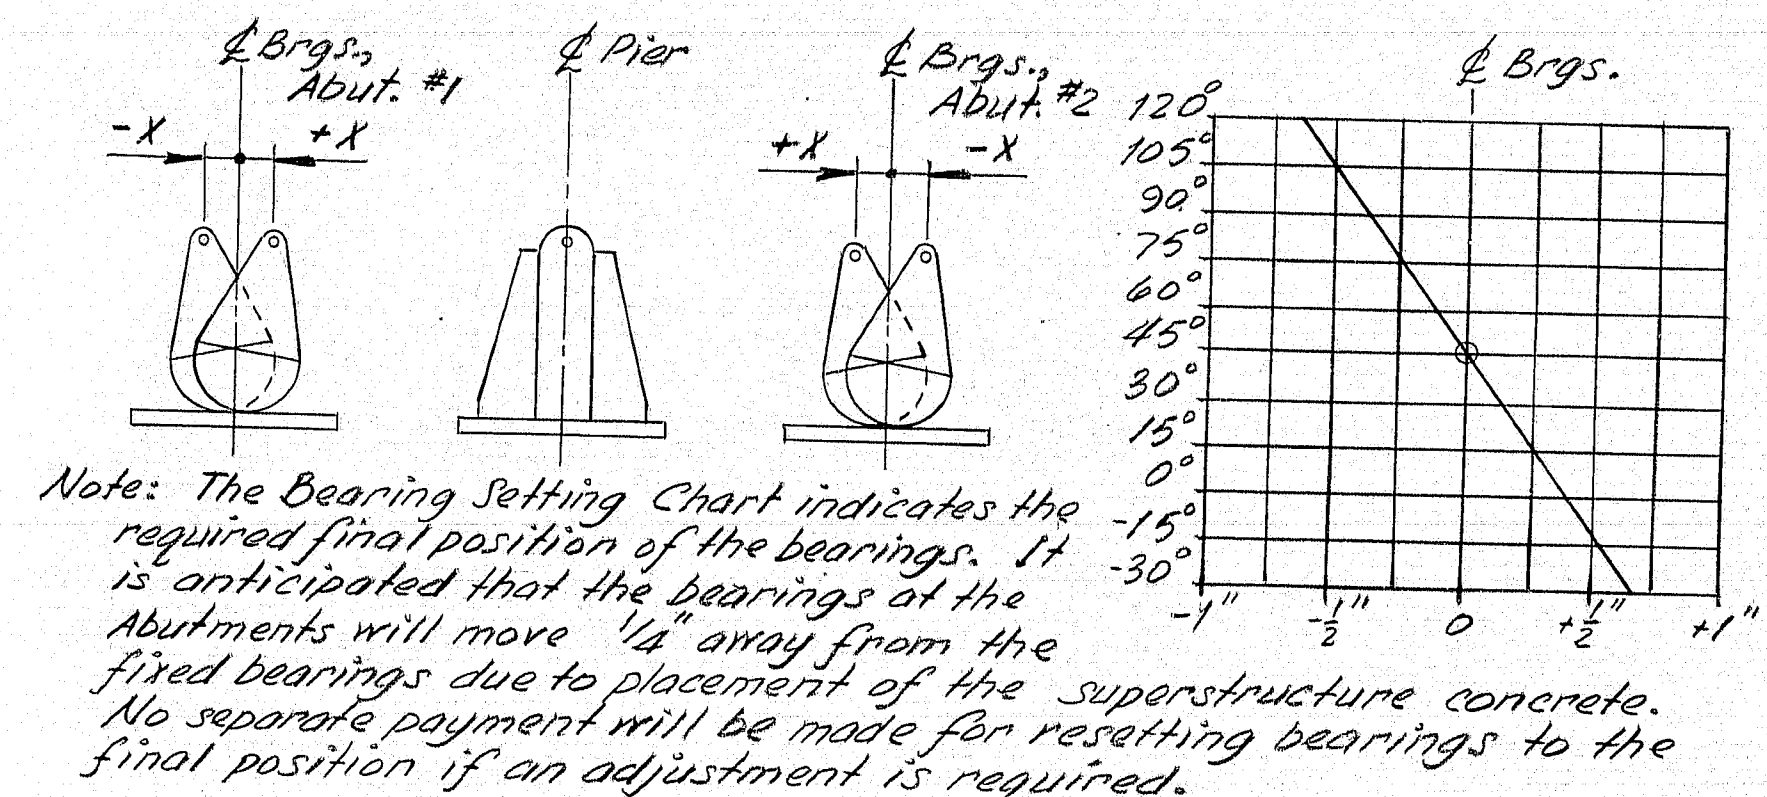 ℄ Brgs.,
Abut. #1
-X
+X
℄ Pier
℄ Brgs.,
Abut. #2
+X
-X
℄ Brgs.
120°
105°
90°
75°
60°
45°
30°
15°
0°
-15°
-30°
-1"
-1/2"
0
+1/2"
+1"
Note: The Bearing Setting Chart indicates the
required final position of the bearings. It
is anticipated that the bearings at the
Abutments will move 1/4" away from the
fixed bearings due to placement of the superstructure concrete.
No separate payment will be made for resetting bearings to the
final position if an adjustment is required.